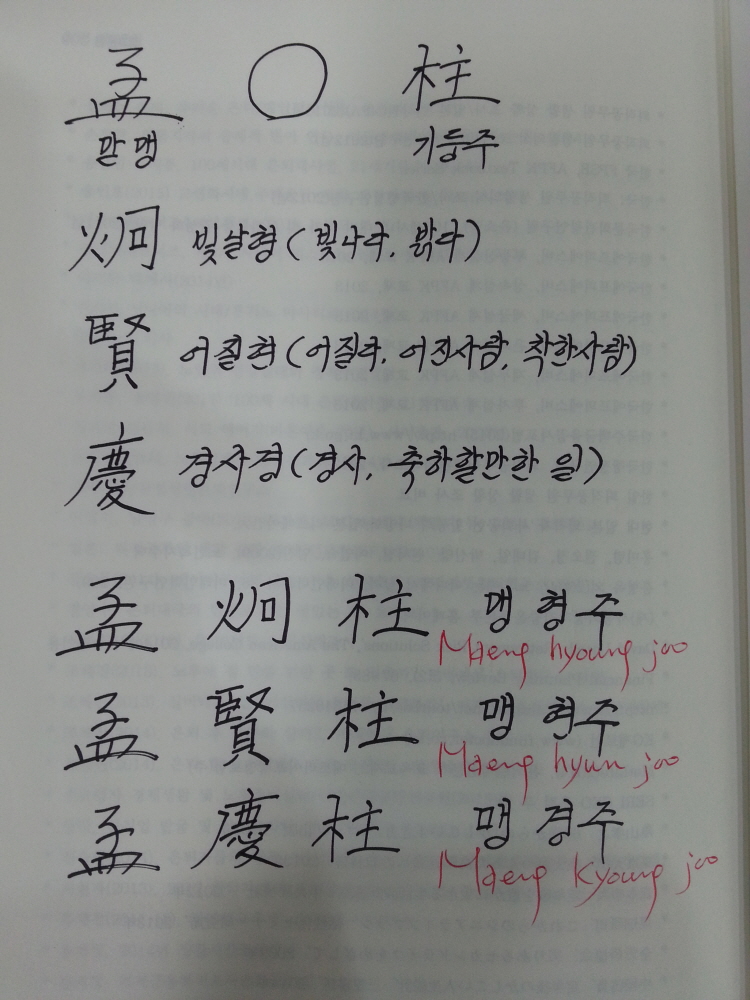 孟 ○ 柱
맏맹 기둥주
炯 빛날형(빛나다, 밝다)
賢 어질현(어질다, 어진사람, 착한사람)
慶 경사경(경사, 축하할만한 일)
孟 炯 柱 맹형주
Maeng hyoung joo
孟 賢 柱 맹현주
Maeng hyun joo
孟 慶 柱 맹경주
Maeng Kyoung joo